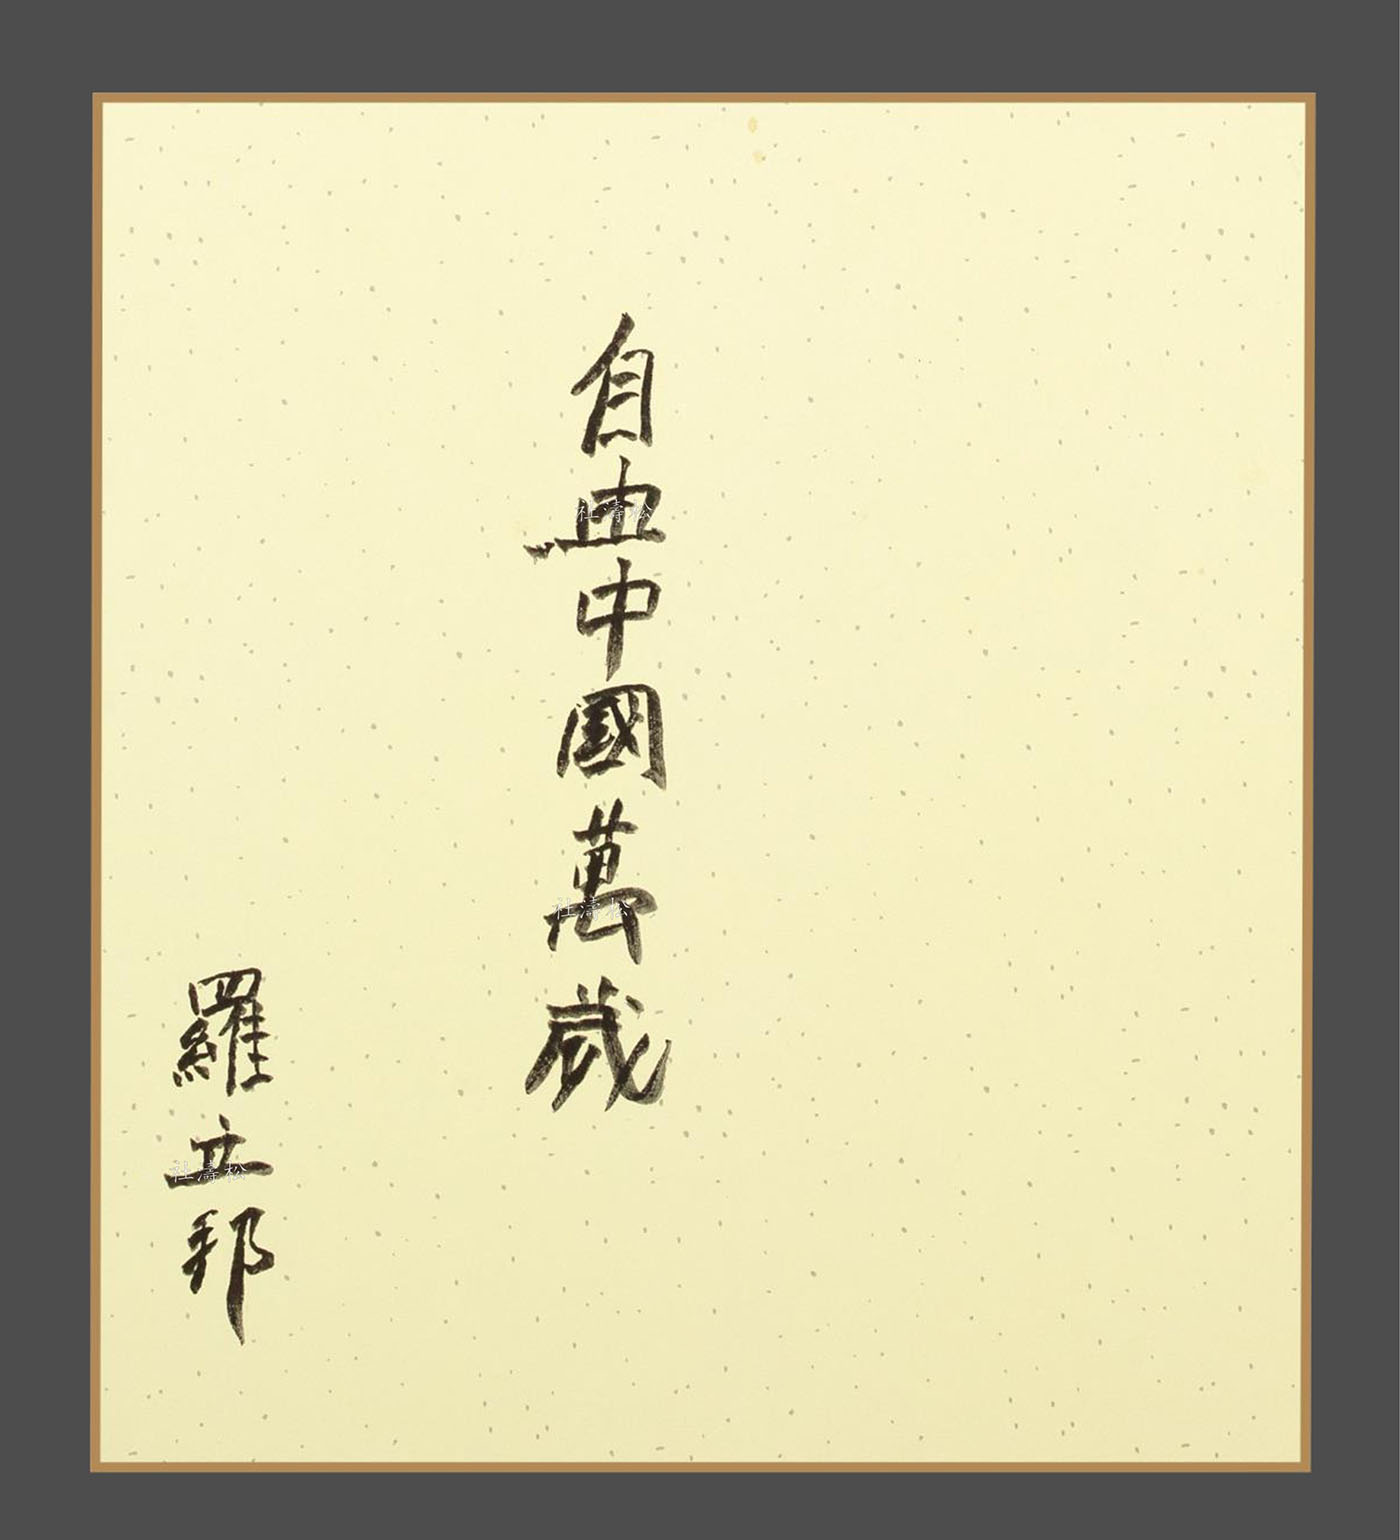 自由中國萬歲
羅立邦
杜濤松
杜濤松
杜濤松